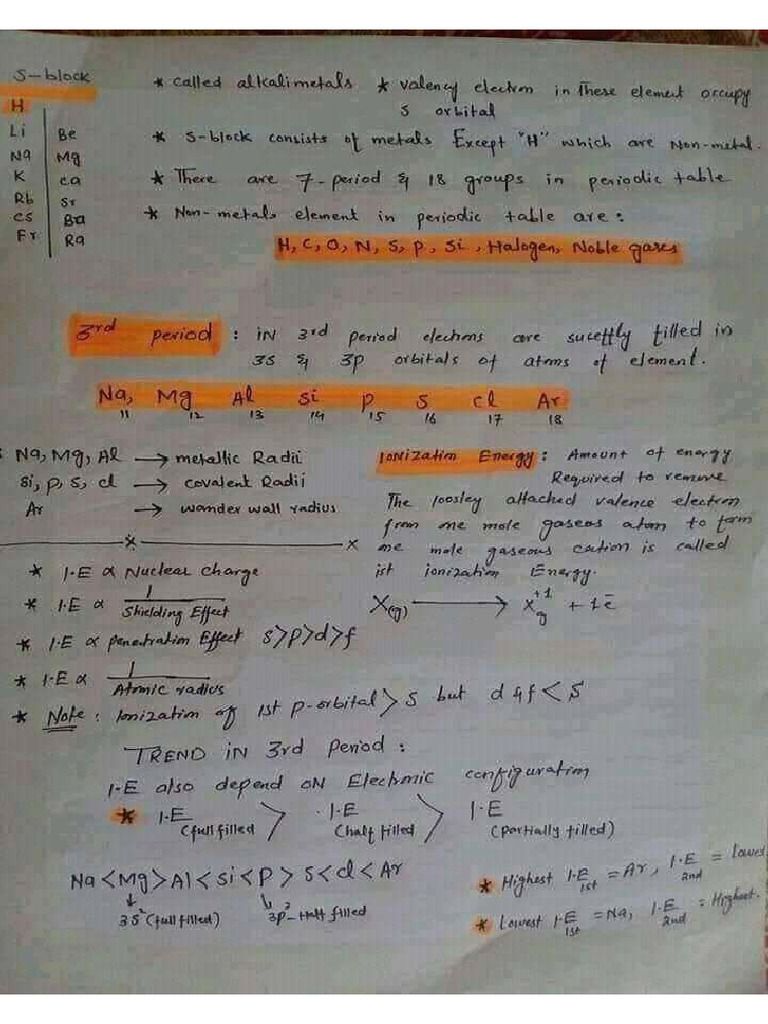 S-block
H
Li Be
Na Mg
K Ca
Rb Sr
Cs Ba
Fr Ra
* called alkalimetals * valency electron in These element occupy
s orbital
* S-block consists of metals Except "H" which are Non-metal.
* There are 7-period & 18 groups in periodic table
* Non-metals element in periodic table are:
H, C, O, N, S, P, Si, Halogen, Noble gases
3rd period : IN 3rd period elechons are sucettly filled in
3s & 3p orbitals of atoms of element.
Na, Mg Al Si P S Cl Ar
11 12 13 14 15 16 17 18
Na, Mg, Al → metallic Radii
Si, P, S, cl → covalent Radii
Ar → wander wall radius
* I.E ∝ Nuclear charge
* I.E ∝ 1/Shielding Effect
* I.E ∝ penetration Effect s>p>d>f
* I.E ∝ 1/Atomic radius
* Note: Ionization of 1st p-orbital > S but d & f < S
Ionization Energy: Amount of energy
Required to remove
The loosley attached valence electron
from one mole gaseas atom to form
one mole gaseous cation is called
ist ionization Energy.
X(g) → X+1 g + 1ē
TREND IN 3rd Period :
I.E also depend ON Electronic configuration
* I.E (full filled) > I.E (half filled) > I.E (partially filled)
Na < Mg > Al < Si < P > S < Cl < Ar
3S² (full filled) 3p³-Half filled
* Highest I.E 1st = Ar, I.E 2nd = lowest
* Lowest I.E 1st = Na, I.E 2nd = Highest.